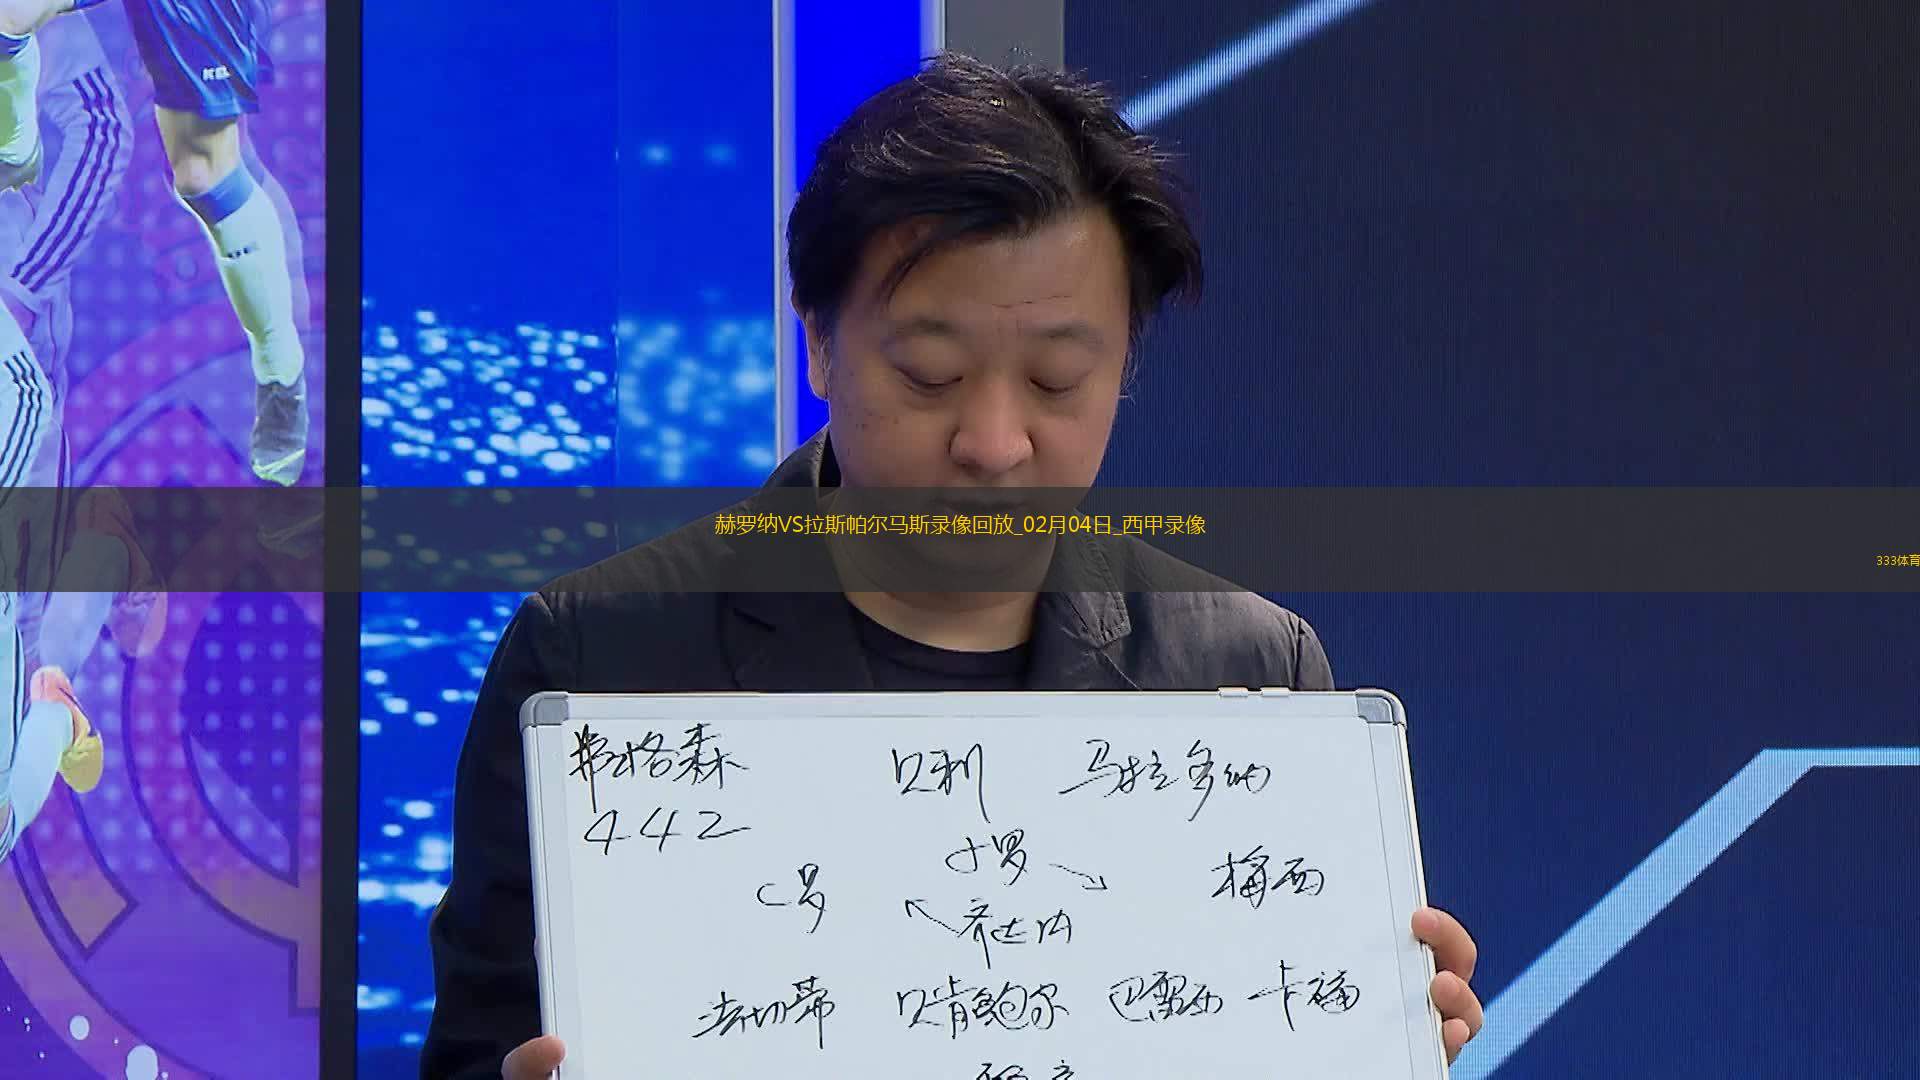 KEL
赫罗纳VS拉斯帕尔马斯录像回放_02月04日_西甲录像
333体育
弗格森 贝利 马拉多纳
442
小罗
C罗 梅西
齐达内
法切蒂 贝肯鲍尔 巴雷西 卡福